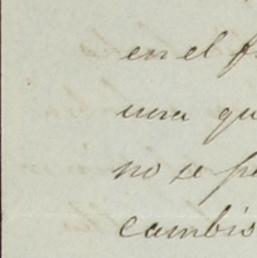 en el f
una qu
no se pe
cambis